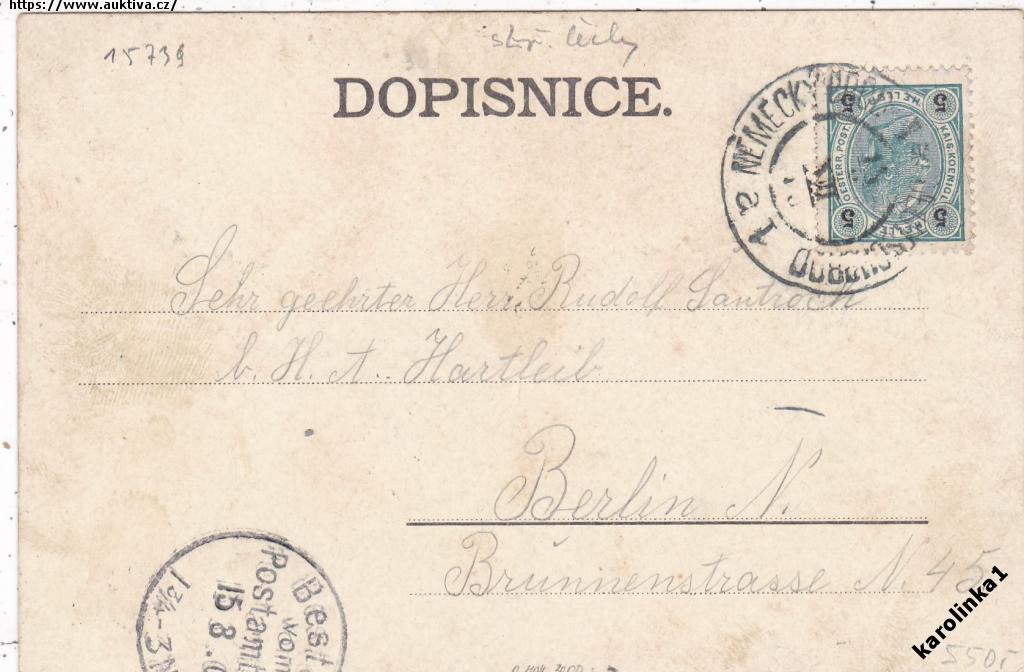 https://www.auktiva.cz/
15739
DOPISNICE.
1a NĚMECKÝ BROD
DEUTSCHBROD
5 HELLER 5
OESTERR. POST. KAIS. KOENIGL.
5 HELLER 5
Sehr geehrter Herr Rudolf Santroch
b. H. A. Hartleib
Berlin N.
Brunnenstrasse N. 45
Best
vom
Postamt
15 8.
1¾-3N
karolinka1
550,-